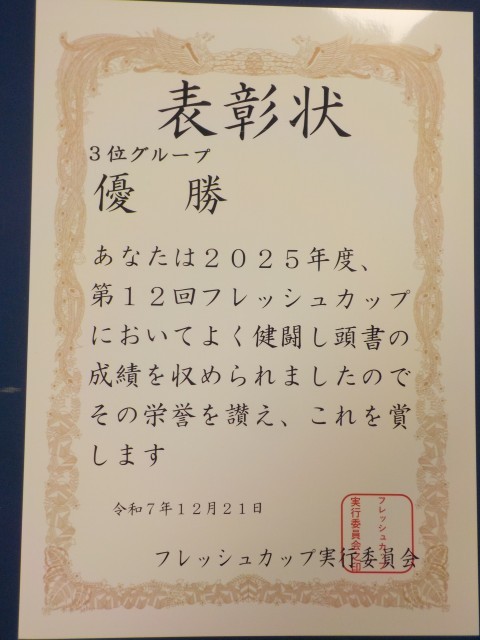 表彰状
３位グループ
優　勝
あなたは２０２５年度、
第１２回フレッシュカップ
においてよく健闘し頭書の
成績を収められましたので
その栄誉を讃え、これを賞
します
令和７年１２月２１日
フレッシュカップ実行委員会
フレッシュカップ
実行委員会之印